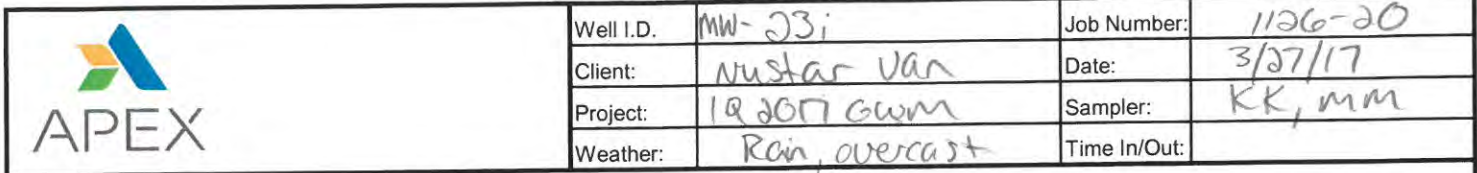 Well I.D. MW-23i Job Number: 1126-20
Client: Nustar Van Date: 3/27/17
Project: 1Q 2017 GWM Sampler: KK, MM
Weather: Rain, overcast Time In/Out:
APEX